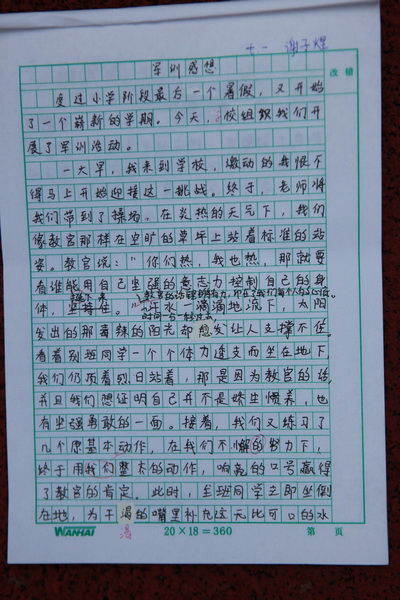 十一 谢子煜
改错
军训感想
度过小学阶段最后一个暑假，又开始
了一个崭新的学期。今天，校组织我们开
展了军训活动。
一大早，我来到学校，激动的我恨不
得马上开始迎接这一挑战。终于，老师将
我们带到了操场。在炎热的天气下，我们
像教官那样在空旷的草坪上站着标准的站
姿。教官说："你们热，我也热，那就要
看谁能用自己坚强的意志力控制自己的身
体，坚持住。"汗水一滴滴地流下，太阳
发出的那毒辣的阳光却想让人支撑不住。
看着别班同学一个个体力透支而坐在地下，
我们仍顶着烈日站着，那是因为教官的话，
并且我们想证明自己并不是娇生惯养，也
有坚强勇敢的一面。接着，我们又练习了
几个原基本动作，在我们不懈的努力下，
终于用我们整齐的动作，响亮的口号赢得
了教官的肯定。此时，全班同学立即坐倒
在地，为干渴的嘴里补充这无比可口的水
WANHAI 20×18=360 第 页